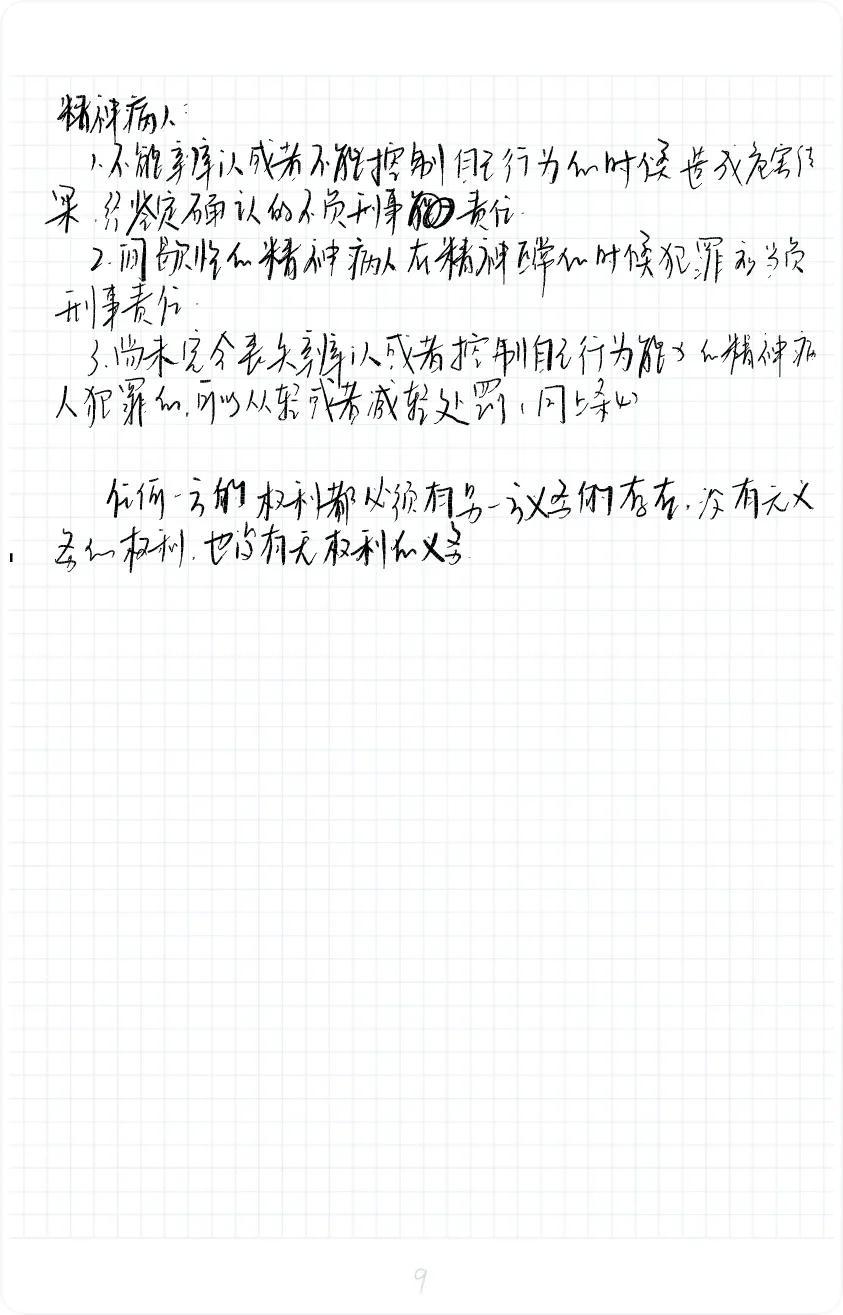 精神病人:
1.不能辨认或者不能控制自己行为的时候造成危害结
果,经鉴定确认的不负刑事责任.
2.间歇性的精神病人在精神正常的时候犯罪应当负
刑事责任.
3.尚未完全丧失辨认或者控制自己行为能力的精神病
人犯罪的,可以从轻或者减轻处罚,同上条
任何一方的权利都必须有另一方义务的存在,没有无义
务的权利,也没有无权利的义务
9